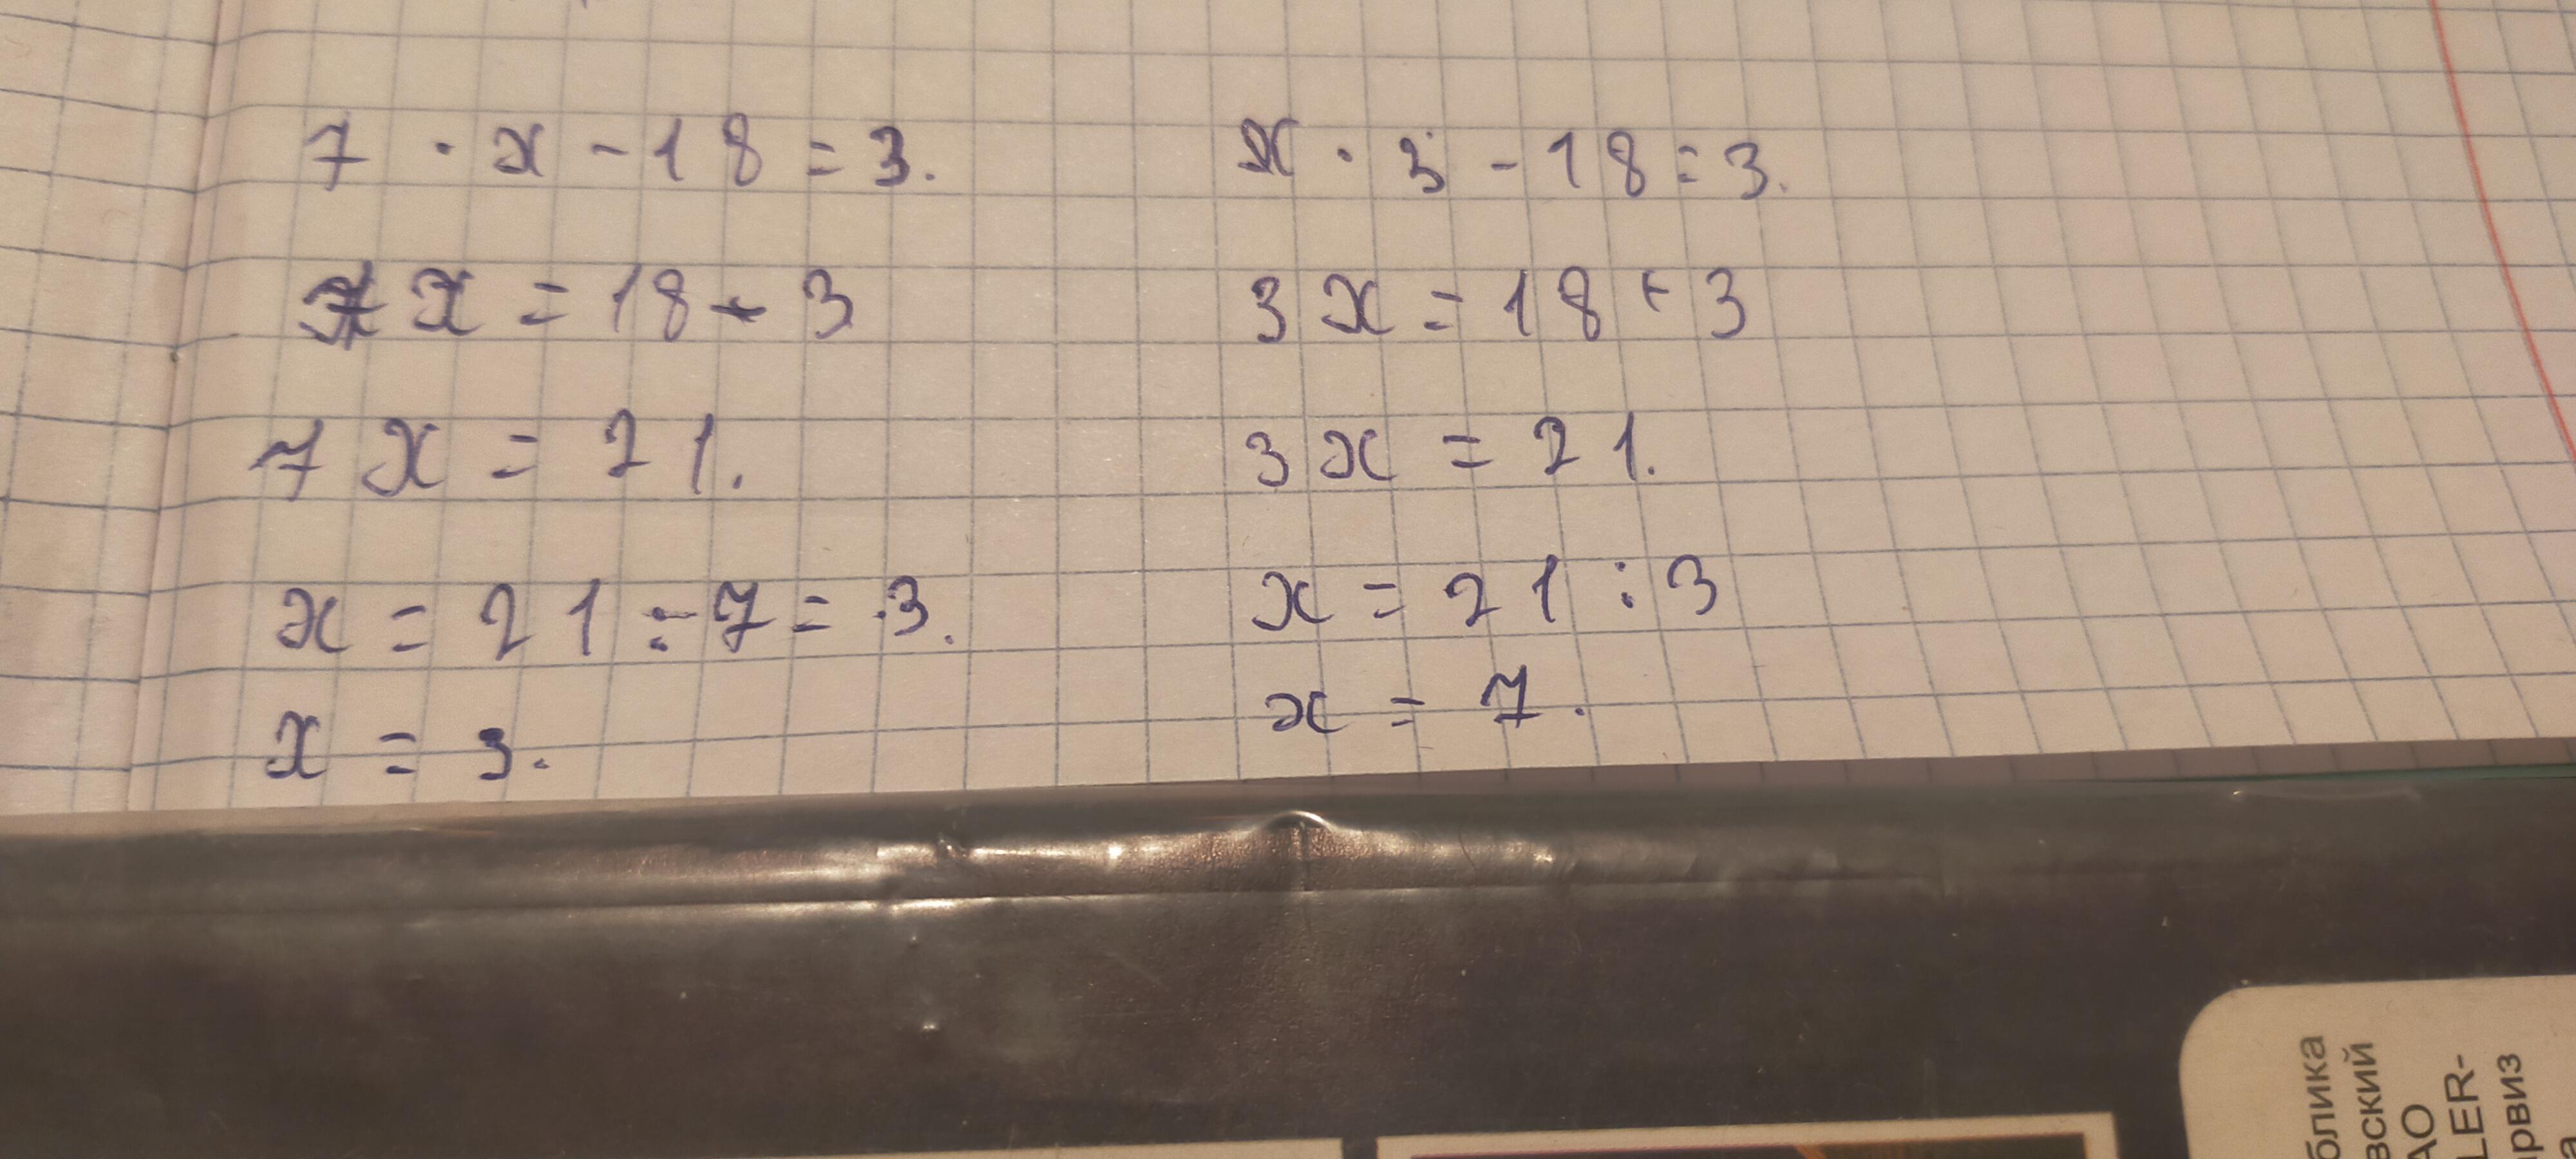 7 · x - 18 = 3.
7x = 18 + 3
7x = 21.
x = 21 : 7 = 3.
x = 3.
x · 3 - 18 = 3.
3x = 18 + 3
3x = 21.
x = 21 : 3
x = 7.
блика
вский
АО
LER-
рвиз